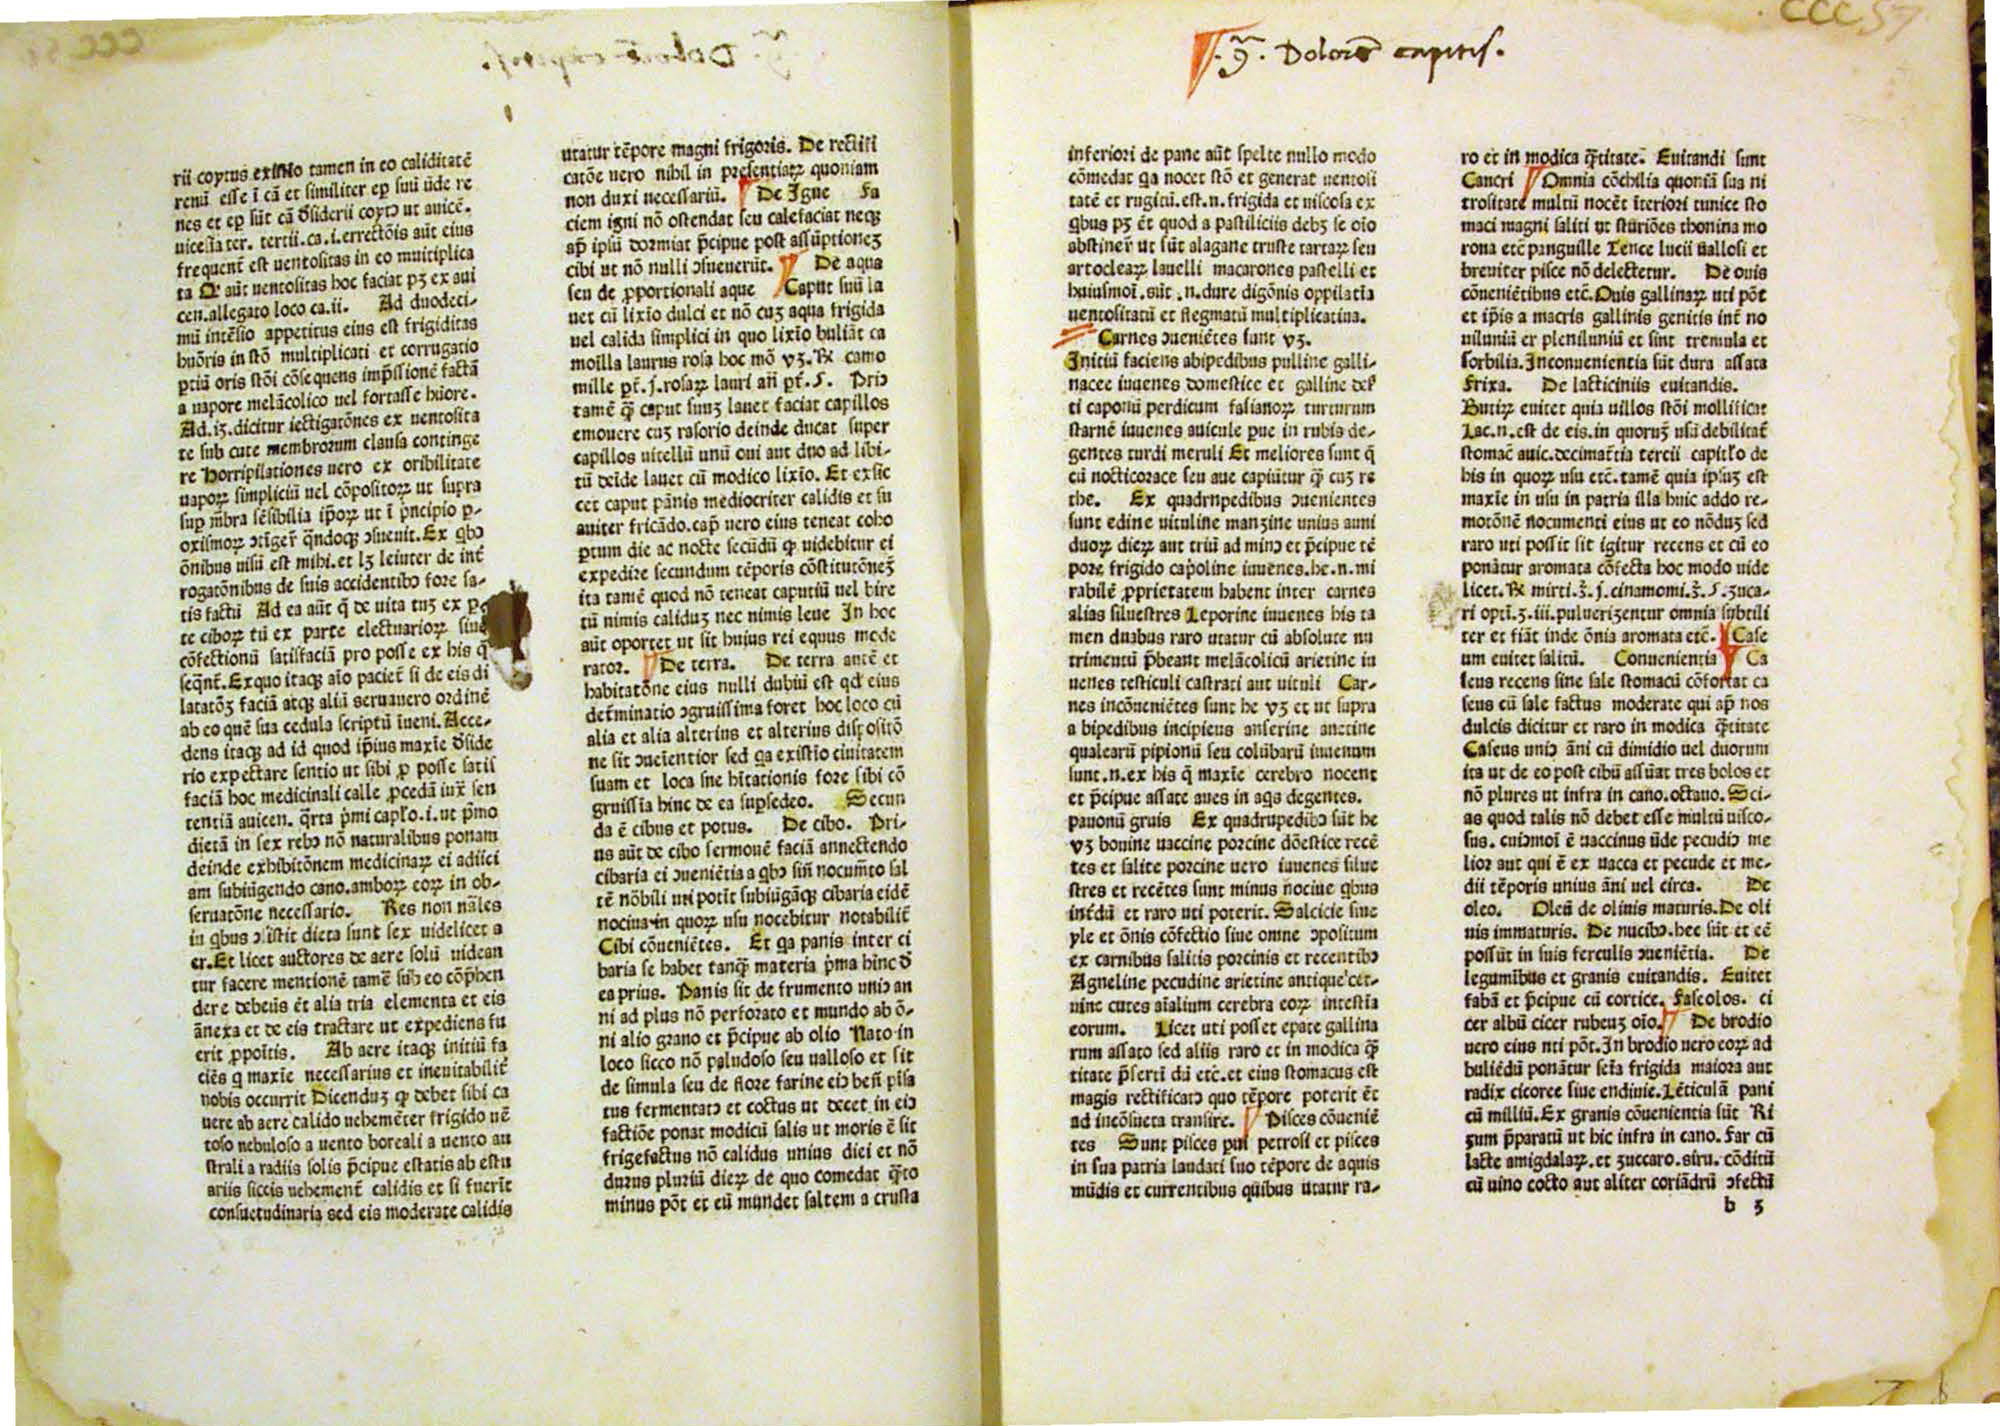 .ꝯ̃. Dolorē capitis.
CCC 57
rii coytus existio tamen in eo caliditatē
renū esse ī cā et similiter eꝑ suū ūde re
nes et eꝑ sūt cā ꝺ̄siderii coytꝰ ut auicē.
uicesīa ter. tertii.ca.i.errectōis aūt eius
frequent̄ est uentositas in eo multiplica
ta aūt uentositas hoc faciat pꝫ ex aui
cen.allegato loco ca.ii. Ad duodeci-
mū intēsio appetitus eius est frigiditas
huōris in stō multiplicati et corrugatio
ꝑtiū oris stōi cōsequens imp̄ssionē factā
a uapore melācolico uel fortasse hūore.
Ad.iꝫ.dicitur iectigatōnes ex uentosita
te sub cute membrorum clausa continge
re Horripilationes uero ex oribilitate
uapoꝝ simpliciū uel cōpositoꝝ ut supra
suꝑ mēbra sēsibilia ip̄oꝝ ut ī p̄ncipio ꝑ-
oxismoꝝ ꝯtīger̄ qn̄doqꝫ ꝯsueuit.Ex qbꝰ
ōnibus uisū est mihi.et lꝫ leiuter de int̄
rogatōnibus de suis accidentibꝰ fore sa-
tis factū Ad ea aūt q̄ de uita tuꝫ ex ꝑ
te ciboꝝ tū ex parte electuarioꝝ siue
cōfectionū satisfaciā pro posse ex his q̄
seqn̄t.Exquo itaqꝫ aīo paciet̄ si de eis di
latatōꝫ faciā atqꝫ aliū seruauero ordinē
ab eo quē sua cedula scriptū iueni.Acce-
dens itaqꝫ ad id quod ip̄ius maxīe ꝺ̄side
rio expectare sentio ut sibi ꝓ posse satis
faciā hoc medicinali calle ꝓcedā iux̄ sen
tentiā auicen. q̄rta p̄mi capł̄o.i.ut p̄mo
dietā in sex rebꝰ nō naturalibus ponam
deinde exhibitōnem medicinaꝝ ei adiici
am subiūgendo cano.amboꝝ eoꝝ in ob-
seruatōne necessario. Res non nāles
in qbus ꝯsistit dieta sunt sex uidelicet a
er.Et licet auctores de aere solū uidean
tur facere mentionē tamē sub eo cōp̄hen
dere debeūs ēt alia tria elementa et eis
ānexa et de eis tractare ut expediens fu
erit ꝓpoītis. Ab aere itaqꝫ initiū fa
ciēs q maxīe necessarius et ineuitabilit̄
nobis occurrit Dicenduꝫ ꝙ debet sibi ca
uere ab aere calido uehemēter frigido uē
toso nebuloso a uento boreali a uento au
strali a radiis solis p̄cipue estatis ab estu
ariis siccis uehement̄ calidis et si fuerīt
consuetudinaria sed eis moderate calidis
utatur tēpore magni frigoris. De rectifi
catōe uero nihil in presentiaꝝ quoniam
non duxi necessariū. De Igne Fa
ciem igni nō ostendat seu calefaciat neqꝫ
ap̄ ipsū dormiat p̄cipue post assūptioneꝫ
cibi ut nō nulli ꝯsueuerūt. De aqua
seu de ꝓportionali aque Caput suū la
uet cū lixīo dulci et nō cuꝫ aqua frigida
uel calida simplici in quo lixīo buliāt ca
moilla laurus rosa hoc mō vꝫ.℞ camo
mille pt̄.j.rosaꝝ lauri an̄ pt̄.5. Priꝰ
tamē q̄ caput suuꝫ lauet faciat capillos
emouere cuꝫ rasorio deinde ducat super
capillos uitellū unū oui aut duo ad libi-
tū deīde lauet cū modico lixīo. Et exsic
cet caput pānis mediocriter calidis et su
auiter fricādo.cap̄ uero eius teneat coho
ꝑtum die ac nocte secūdū ꝙ uidebitur ei
expedire secundum tēporis cōstitutōneꝫ
ita tamē quod nō teneat caputiū uel bire
tū nimis caliduꝫ nec nimis leue In hoc
aūt oportet ut sit huius rei equus mode
rator. De terra. De terra autē et
habitatōne eius nulli dubiū est qd̄ eius
det̄minatio ꝯgruissima foret hoc loco cū
alia et alia alterius et alterius dispositō
ne sit ꝯueīentior sed qa existīo ciuitatem
suam et loca sne hītationis fore sibi cō
gruissīa hinc de ea suꝑsedeo. Secun
da ē cibus et potus. De cibo. Pri-
us aūt de cibo sermonē faciā annectendo
cibaria ei ꝯueniētia a qbꝰ sin̄ nocumēto sal
tē nōbili uti potīt subiūgāqꝫ cibaria eidē
nociua in quoꝝ usu nocebitur notabilit̄
Cibi cōueniētes. Et qa panis inter ci
baria se habet tanqꝫ materia p̄ma hinc ꝺ̄
ea prius. Panis sit de frumento uniꝰ an
ni ad plus nō perforato et mundo ab ō-
ni alio grano et p̄cipue ab olio Nato in
loco sicco nō paludoso seu ualloso et sit
de simula seu de flore farine eiꝰ ben̄ p̄isa
tus fermentatꝰ et coctus ut decet in eiꝰ
factiōe ponat modicū salis ut moris ē sit
frigefactus nō calidus unius diei et nō
durus pluriū dieꝝ de quo comedat q̄to
minus pōt et eū mundet saltem a crusta
inferiori de pane aūt spelte nullo modo
cōmedat qa nocet stō et generat uentosi
tatē et rugitū.est.n.frigida et uiscosa ex
qbus pꝫ ēt quod a pastiliciis debꝫ se oīo
abstiner̄ ut sūt alagane truste tartaꝝ seu
artocleaꝝ lauelli macarones pastelli et
huiusmoī.sūt.n.dure digōnis oppilatīa
uentositatū et flegmatū multiplicatiua.
Carnes ꝯueniētes sunt vꝫ.
Initiū faciens abipedibus pulline galli-
nacee iuuenes domestice et galline desꝑ
ti caponū perdicum fasianoꝝ turturum
starnē iuuenes auicule ꝑue in rubis de-
gentes turdi meruli Et meliores sunt q̄
cū nocticorace seu aue capiūtur q̄ cuꝫ re
the. Ex quadrupedibus ꝯuenientes
sunt edine uituline manꝫine unius anni
duoꝝ dieꝝ aut triū ad minꝰ et p̄cipue tē
pore frigido capōline iuuēnes.he.n.mi
rabilē ꝓprietatem habent inter carnes
alias siluestres Leporine iuuenes his ta
men duabus raro utatur cū absolute nu
trimentū p̄beant melācolicū arietine iu
uenes testiculi castrati aut uituli Car-
nes incōueniētes sunt he vꝫ et ut supra
a bipedibus incipiens anserine anetine
qualearū pipionū seu colūbarū iuuenum
sunt.n.ex his q̄ maxīe cerebro nocent
et p̄cipue assate aues in aqs degentes.
pauonū gruis Ex quadrupedibꝰ sūt he
vꝫ bouine uaccine porcine dōestice recē
tes et salite porcine uero iuuenes silue
stres et recētes sunt minus nociue qbus
int̄dū et raro uti poterit. Salcicie siue
yle et ōnis cōfectio siue omne ꝯpositum
ex carnibus salitis porcinis et recentibꝰ
Agneline pecudine arietine antique cer-
uine cutes aīalium cerebra eoꝝ intestīa
eorum. Licet uti posset epate gallina
rum assato sed aliis raro et in modica q̄
titate p̄sertī dū etc̄.et eius stomacus est
magis rectificatꝰ quo tēpore poterit ēt
ad incōsueta transire. Pisces cōueniē
tes Sunt pisces ꝑui petrosi et pisces
in sua patria laudati suo tēpore de aquis
mūdis et currentibus quibus utatur ra-
ro et in modica q̄titate. Euitandi sunt
Cancri Omnia cōchilia quoniā sua ni
trositate multū nocēt īteriori tunice sto
maci magni saliti ut sturiōes thonina mo
rona etc̄ panguille Tence lucii uallosi et
breuiter pisce nō delectetur. De ouis
cōueniētibus etc̄.Ouis gallinaꝝ uti pōt
et ip̄is a macris gallinis genitis int̄ no
uiluniū er pleniluniū et sint tremula et
sorbilia.Inconuenientia sūt dura assata
frixa. De lacticiniis euitandis.
Butiꝝ euitet quia uillos stōi mollificat
Lac.n.est de eis.in quoruꝫ usū debilitat̄
stomac̄ auic.decimat̄ia tertii capitło de
his in quoꝝ usu etc̄.tamē quia ip̄suꝫ est
maxīe in usu in patria illa huic addo re-
motōnē nocumenti eius ut eo nōduꝫ sed
raro uti possit sit igitur recens et cū eo
ponātur aromata cōfecta hoc modo uide
licet.℞ mirti.ꝫ̄.j.cinamomi.ꝫ̄.5.ꝫuca-
ri opti.ꝫ.iii.pulueriꝫentur omnia subtili
ter et fiāt inde ōnia aromata etc̄. Case
um euitet salitū. Conuenientia Ca
seus recens sine sale stomacū cōfortat ca
seus cū sale factus moderate qui ap̄ nos
dulcis dicitur et raro in modica q̄titate
Caseus uniꝰ āni cū dimidio uel duorum
ita ut de eo post cibū assūat tres bolos et
nō plures ut infra in cano.octauo. Sci-
as quod talis nō debet esse multū uisco-
sus. cuiꝰmoī ē uaccinus ūde pecudiꝰ me
lior aut qui ē ex uacca et pecude et me-
dii tēporis unius āni uel circa. De
oleo. Oleū de oliuis maturis.De oli
uis immaturis. De nucibꝰ.hec sūt et eē
possūt in suis ferculis ꝯueniētia. De
legumibus et granis euitandis. Euitet
fabā et p̄cipue cū cortice. Faseolos. ci
cer albū cicer rubeuꝫ oīo. De brodio
uero eius uti pōt.In brodio uero eoꝝ ad
buliēdū ponātur seīa frigida maiora aut
radix cicoree siue endiuie.Lēticulā pani
cū milliū.Ex granis cōuenientia sūt Ri
ꝫum p̄paratū ut hic infra in cano. Far cū
lacte amigdalaꝝ.et ꝫuccaro.siru. cōditū
cū uino cocto aut aliter coriādrū ꝯfectū
b 3